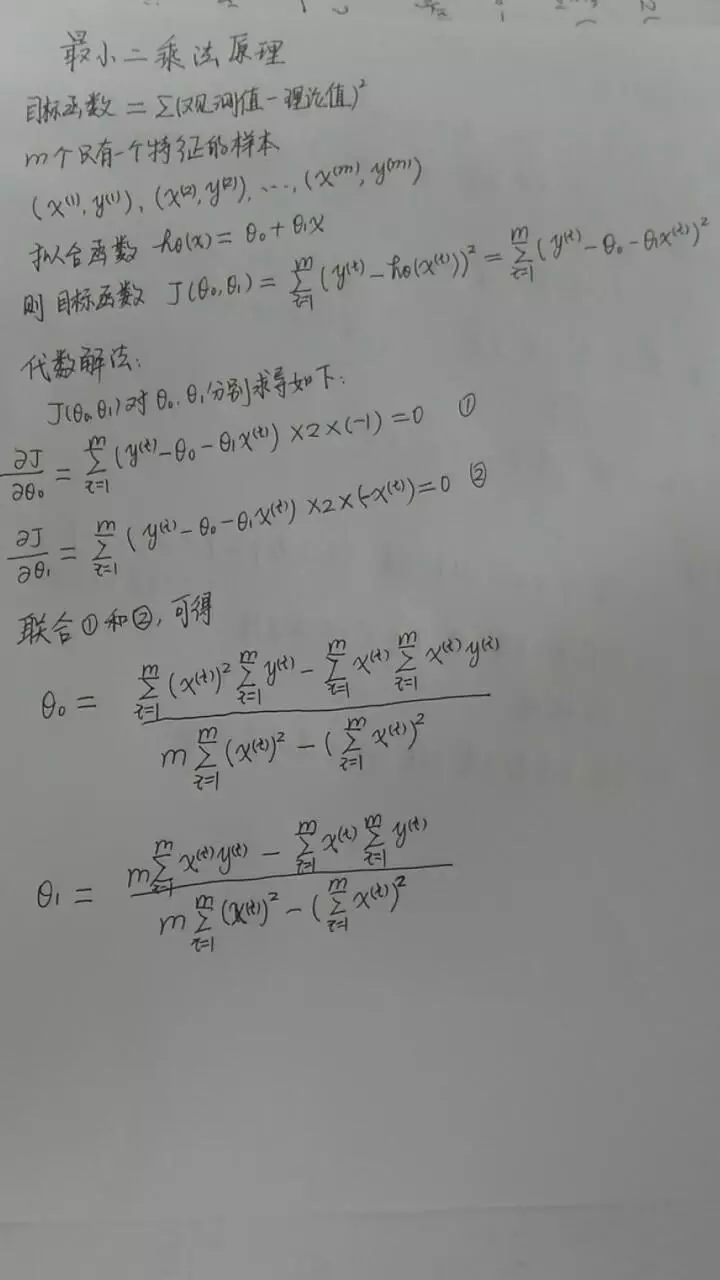 最小二乘法原理
目标函数 = Σ(观测值-理论值)²
m个只有一个特征的样本
(x⁽¹⁾, y⁽¹⁾), (x⁽²⁾, y⁽²⁾), ..., (x⁽ᵐ⁾, y⁽ᵐ⁾)
拟合函数 hθ(x) = θ₀ + θ₁x
则 目标函数 J(θ₀,θ₁) = Σ_{i=1}^{m} (y⁽ⁱ⁾ - hθ(x⁽ⁱ⁾))² = Σ_{i=1}^{m} (y⁽ⁱ⁾ - θ₀ - θ₁x⁽ⁱ⁾)²
代数解法:
J(θ₀,θ₁)对θ₀.θ₁分别求导如下:
∂J/∂θ₀ = Σ_{i=1}^{m} (y⁽ⁱ⁾ - θ₀ - θ₁x⁽ⁱ⁾) × 2 × (-1) = 0 ①
∂J/∂θ₁ = Σ_{i=1}^{m} (y⁽ⁱ⁾ - θ₀ - θ₁x⁽ⁱ⁾) × 2 × (-x⁽ⁱ⁾) = 0 ②
联合①和②, 可得
θ₀ = (Σ_{i=1}^{m} (x⁽ⁱ⁾)² Σ_{i=1}^{m} y⁽ⁱ⁾ - Σ_{i=1}^{m} x⁽ⁱ⁾ Σ_{i=1}^{m} x⁽ⁱ⁾y⁽ⁱ⁾) / (m Σ_{i=1}^{m} (x⁽ⁱ⁾)² - (Σ_{i=1}^{m} x⁽ⁱ⁾)²)
θ₁ = (m Σ_{i=1}^{m} x⁽ⁱ⁾y⁽ⁱ⁾ - Σ_{i=1}^{m} x⁽ⁱ⁾ Σ_{i=1}^{m} y⁽ⁱ⁾) / (m Σ_{i=1}^{m} (x⁽ⁱ⁾)² - (Σ_{i=1}^{m} x⁽ⁱ⁾)²)